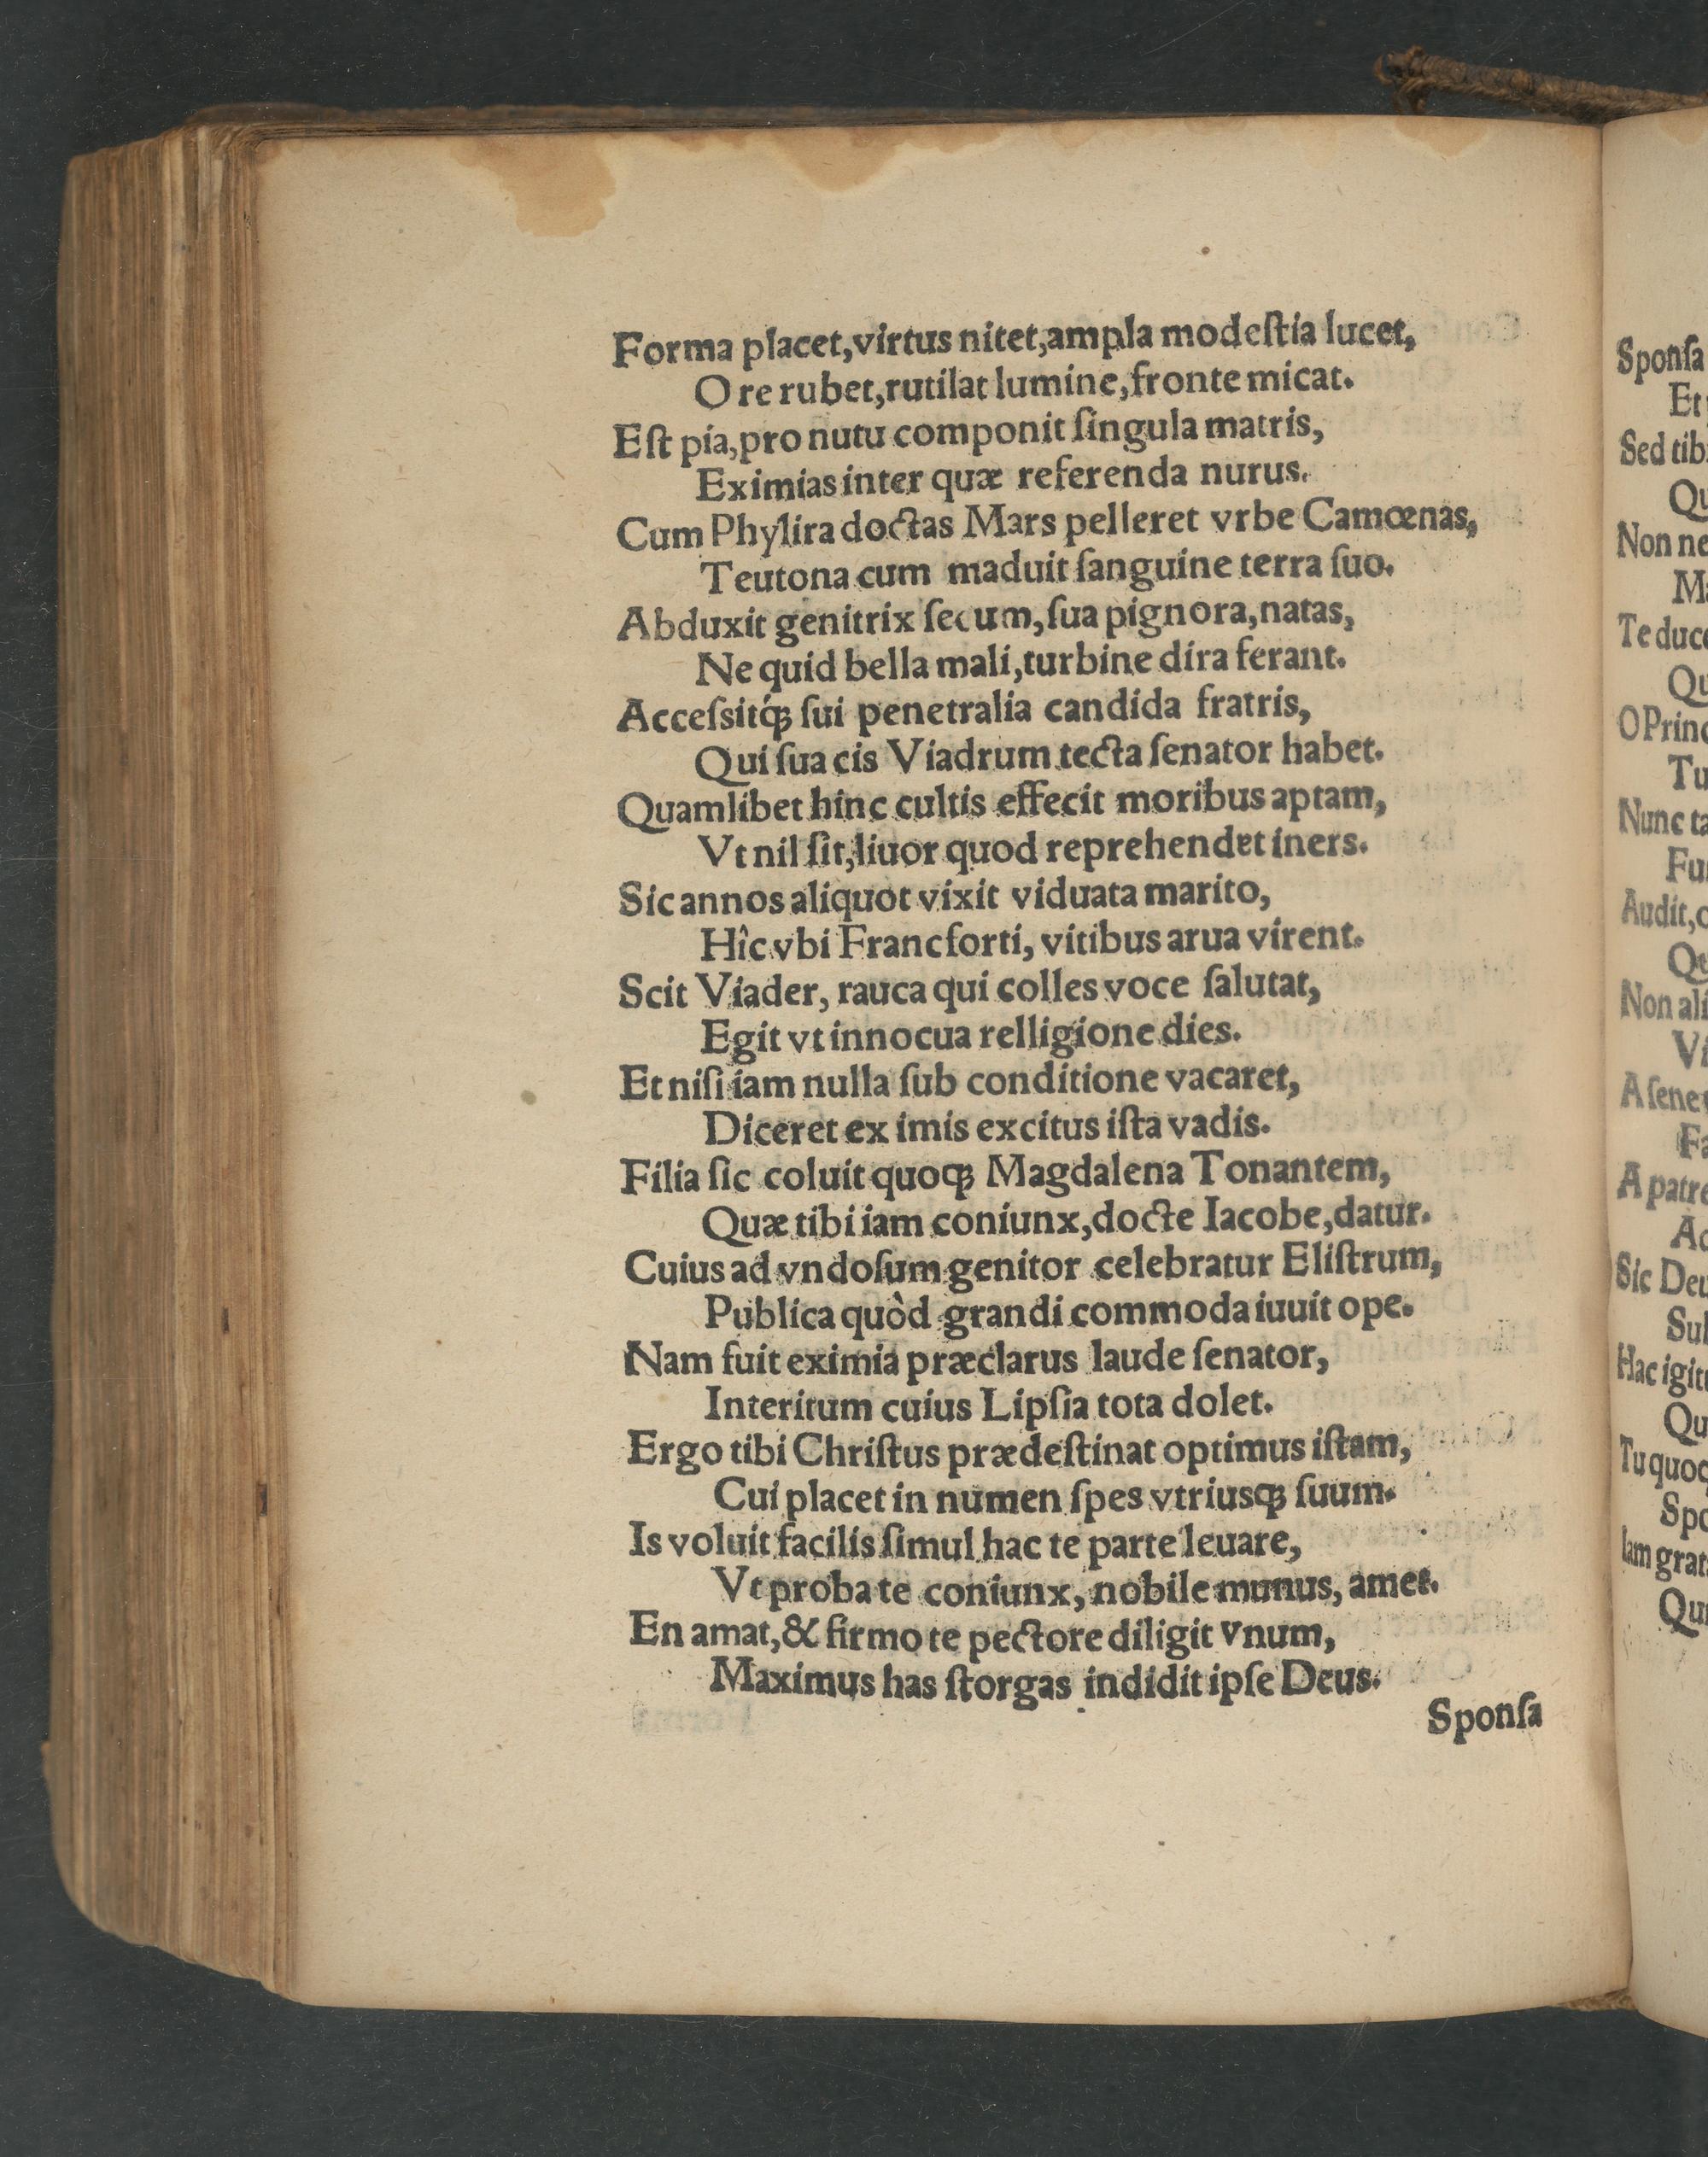 Forma placet,virtus nitet,ampla modeſtia lucet,
Ore rubet,rutilat lumine,fronte micat.
Eſt pia,pro nutu componit ſingula matris,
Eximias inter quæ referenda nurus.
Cum Phylira doctas Mars pelleret vrbe Camœnas,
Teutona cum maduit ſanguine terra ſuo.
Abduxit genitrix ſecum,ſua pignora,natas,
Ne quid bella mali,turbine dira ferant.
Acceſsitq́ꝫ ſui penetralia candida fratris,
Qui ſua cis Viadrum tecta ſenator habet.
Quamlibet hinc cultis effecit moribus aptam,
Vt nil ſit,liuor quod reprehendet iners.
Sic annos aliquot vixit viduata marito,
Hîc vbi Francforti, vitibus arua virent.
Scit Viader, rauca qui colles voce ſalutat,
Egit vt innocua relligione dies.
Et niſi iam nulla ſub conditione vacaret,
Diceret ex imis excitus iſta vadis.
Filia ſic coluit quoqꝫ Magdalena Tonantem,
Quæ tibi iam coniunx,docte Iacobe,datur.
Cuius ad vndoſum genitor celebratur Eliſtrum,
Publica quòd grandi commoda iuuit ope.
Nam fuit eximia præclarus laude ſenator,
Interitum cuius Lipſia tota dolet.
Ergo tibi Chriſtus prædeſtinat optimus iſtam,
Cui placet in numen ſpes vtriusqꝫ ſuum.
Is voluit facilis ſimul hac te parte leuare,
Vt proba te coniunx, nobile munus, amet.
En amat,& firmo te pectore diligit vnum,
Maximus has ſtorgas indidit ipſe Deus.
Sponſa